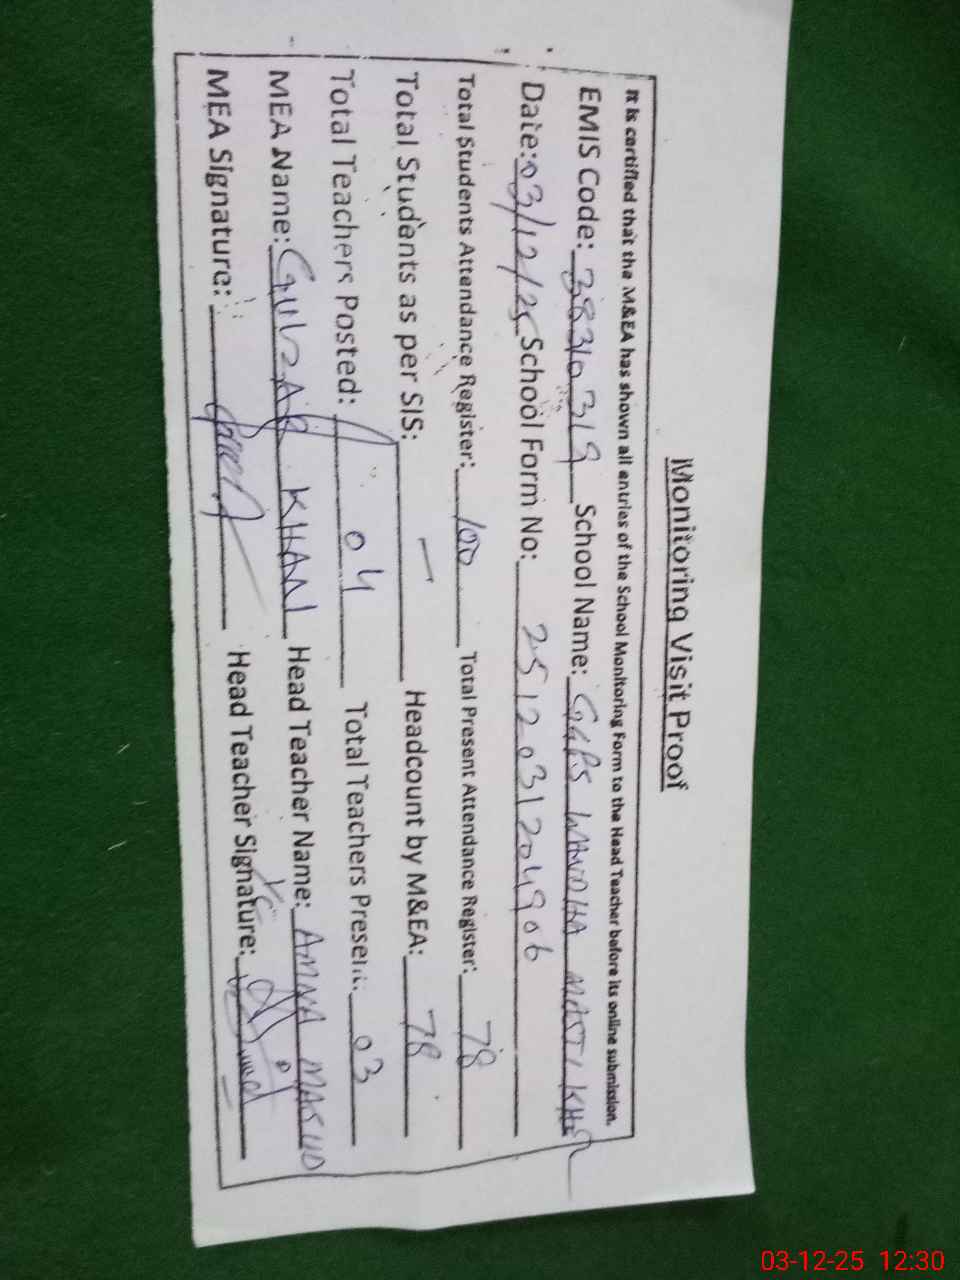 Monitoring Visit Proof
It is certified that the M&EA has shown all entries of the School Monitoring Form to the Head Teacher before its online submission.
EMIS Code: 38310319 School Name: GGPS WANDHA MASTI KHEL
Date: 03/12/25 School Form No: 2512031204906
Total Students Attendance Register: 100 Total Present Attendance Register: 78
Total Students as per SIS: — Headcount by M&EA: 78
Total Teachers Posted: 04 Total Teachers Present: 03
MEA Name: GULZAR KHAN Head Teacher Name: AMNA MASUD
MEA Signature: Head Teacher Signature:
03-12-25 12:30